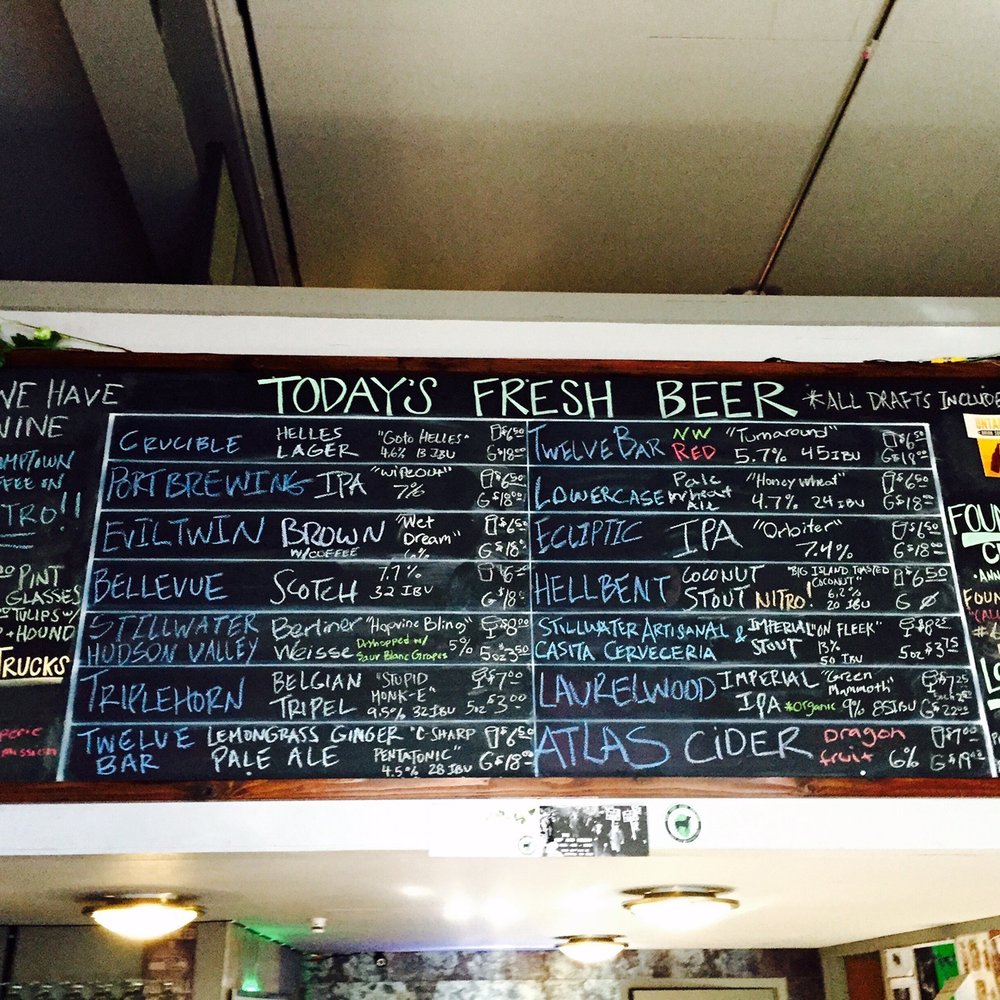 WE HAVE
WINE
COFFEE ON
NITRO!!
PINT
GLASSES
TULIPS W/
HOUND
TRUCKS
TODAY'S FRESH BEER
*ALL DRAFTS INCLUDE
CRUCIBLE HELLES LAGER "Goto HELLES" 4.6% 13 IBU $6.50 G $18.00
PORT BREWING IPA "WIPEOUT" 7% $6.50 G $18.00
EVIL TWIN BROWN W/COFFEE "Wet Dream" 6% $6.50 G $18.00
BELLEVUE SCOTCH 7.7% 32 IBU $6.50 G $18.00
STILLWATER HUDSON VALLEY Berliner Weisse "Hopvine Bling" Dryhopped w/ Sauv Blanc Grapes 5% $8.00 5oz $3.50
TRIPLEHORN BELGIAN TRIPEL "STUPID MONK-E" 9.5% 32 IBU $7.00 5oz $3.00
TWELVE BAR LEMONGRASS GINGER PALE ALE "C-SHARP PENTATONIC" 4.5% 28 IBU $6.50 G $18.00
TWELVE BAR NW RED "Turnaround" 5.7% 45 IBU $6.50 G $18.00
LOWERCASE Pale Wheat Ale "Honey Wheat" 4.7% 24 IBU $6.50 G $18.00
ECLIPTIC IPA "Orbiter" 7.4% $6.50 G $18.00
HELLBENT COCONUT STOUT NITRO! "BIG ISLAND TOASTED COCONUT" 6.2% 20 IBU $6.50 G Ø
STILLWATER ARTISANAL & CASITA CERVECERIA IMPERIAL STOUT "ON FLEEK" 13% 50 IBU 5oz $3.75
LAURELWOOD IMPERIAL IPA "Green Mammoth" *Organic 9% 85 IBU $7.25 G $22.00
ATLAS CIDER Dragon fruit 6% $7.00